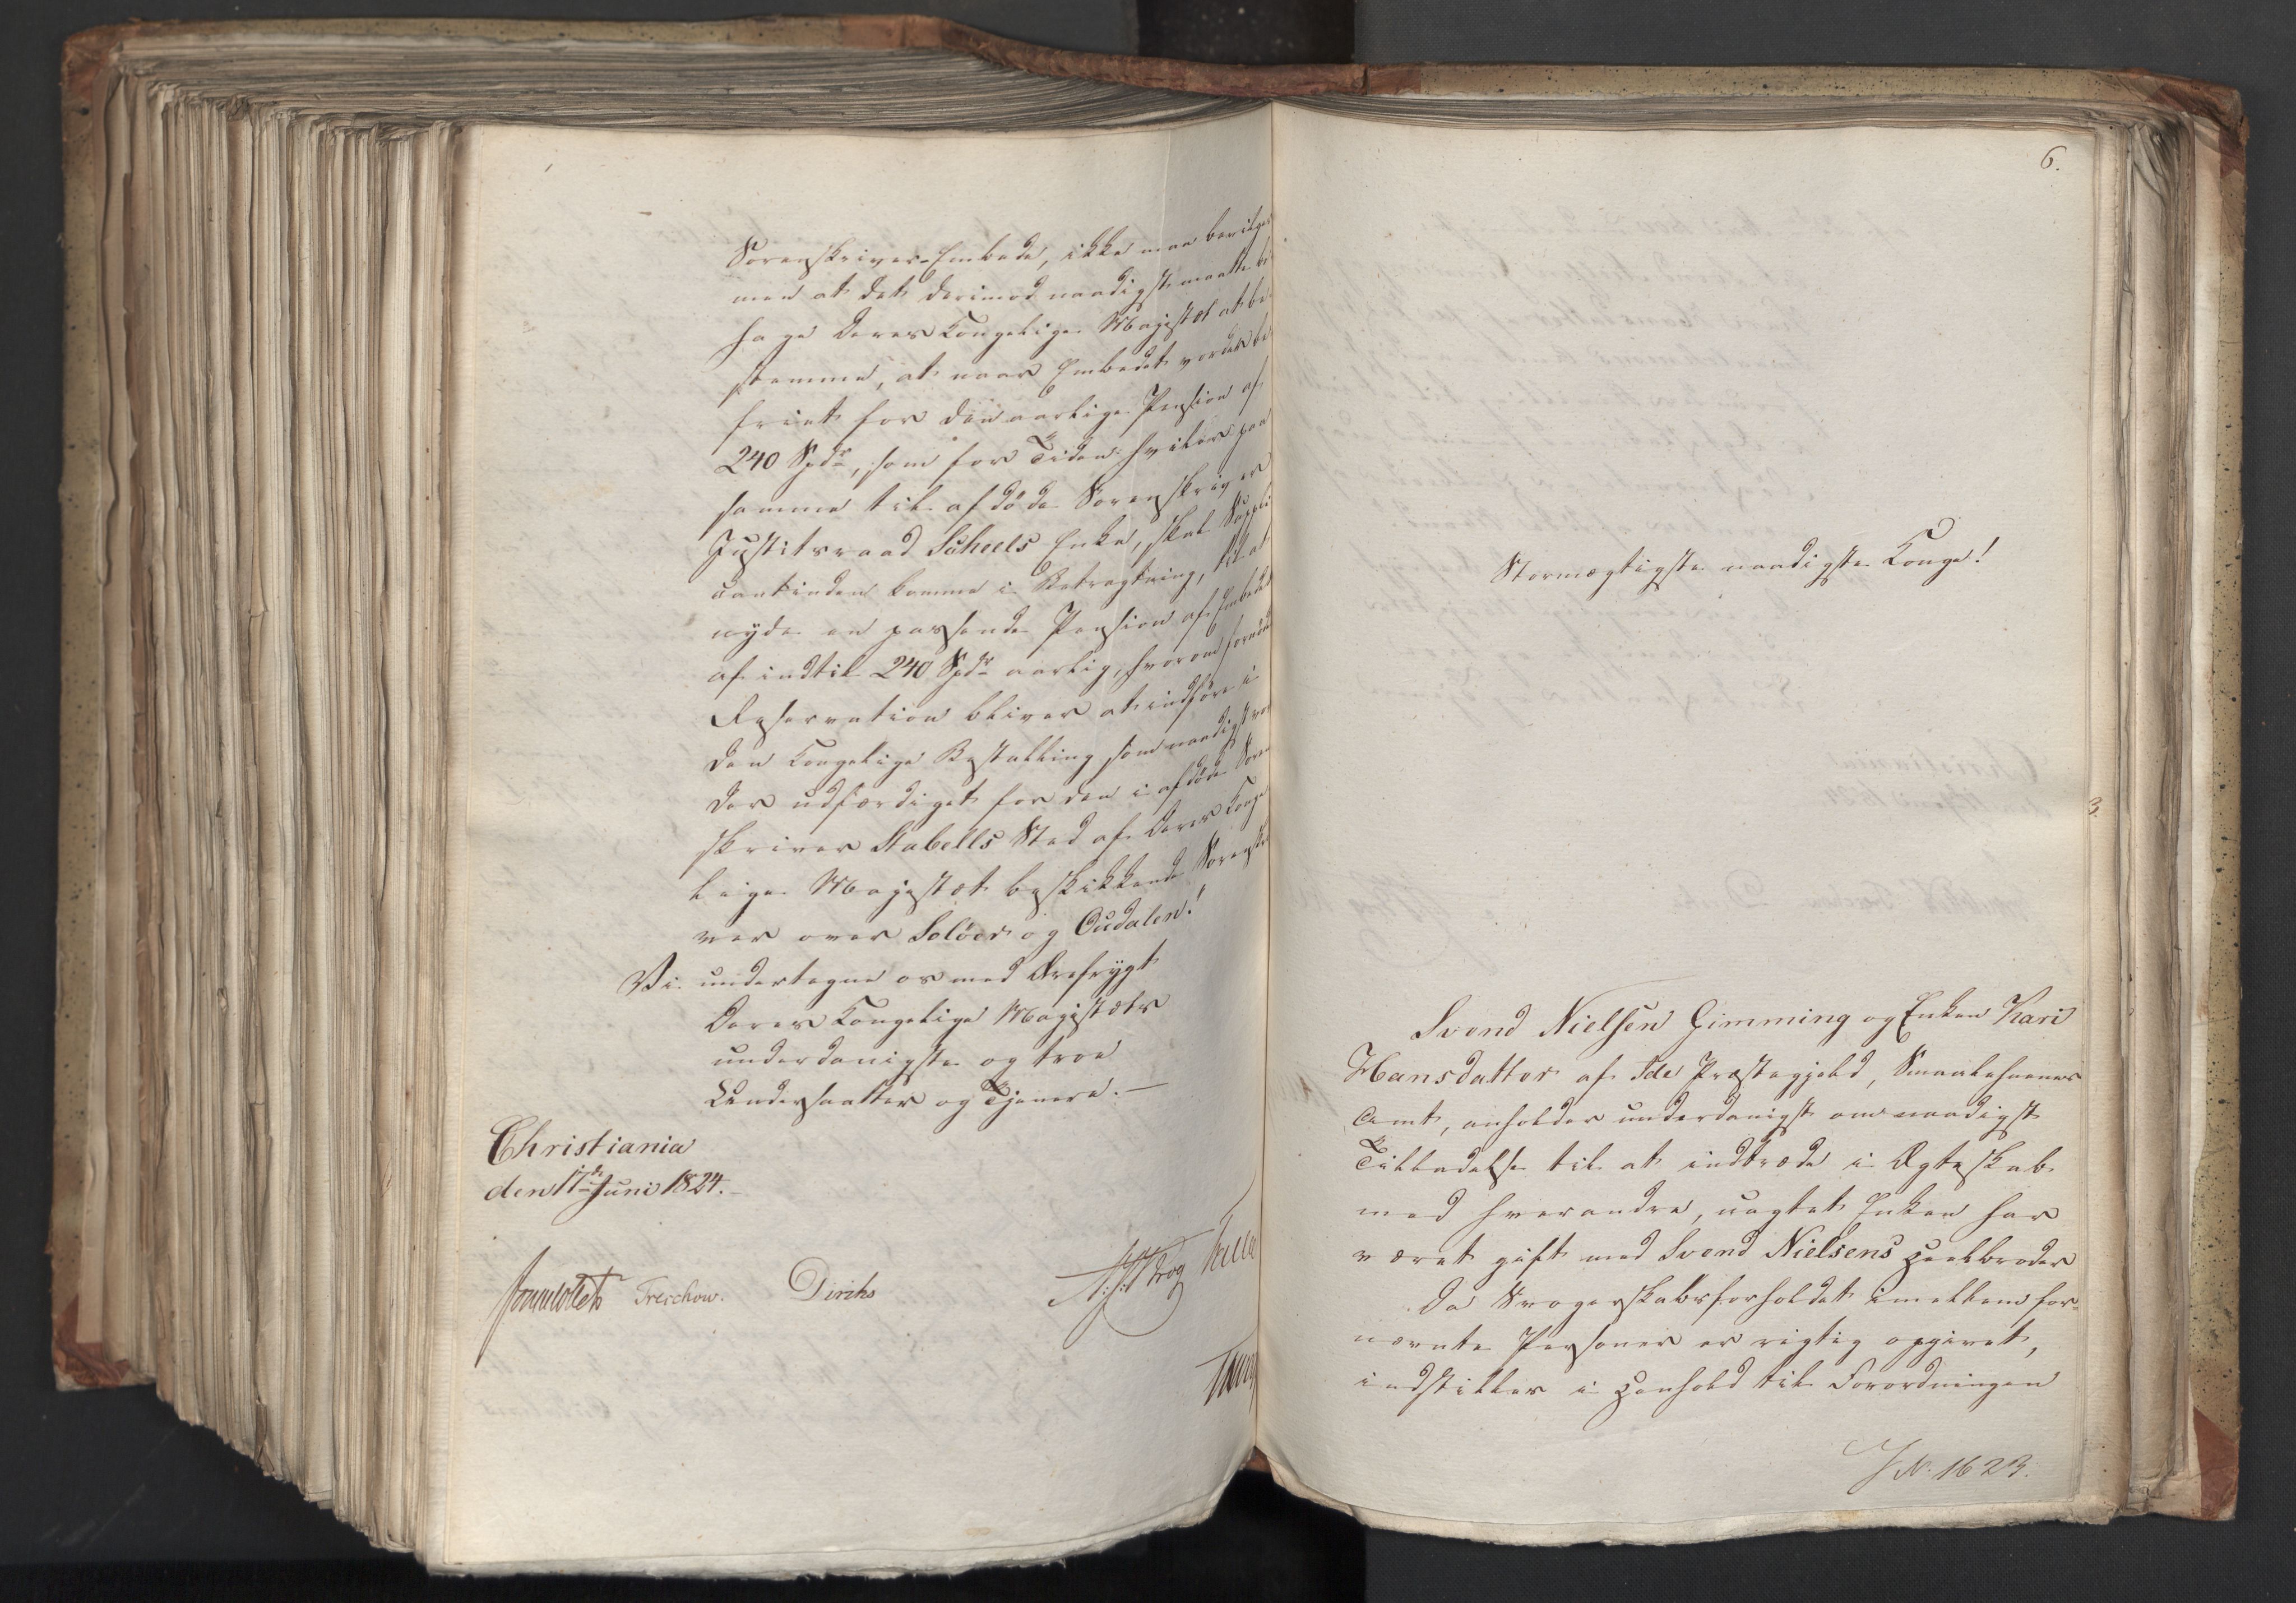 Sorenskriver-Embede, ikke maa bevilges
men at det derimod naadigst maatte be
hage Deres Kongelige Majestæt at be
stemme, at naar Embedet vorder be
friet for den aarlige Pension af
240 Spdr, som for Tiden hviler paa
samme til afdöde Sorenskriver
Justitsraad Scheels Enke, skal Suppli
cantinden komme i Betragtning, til at
nyde en passende Pension af Embedet
af indtil 240 Spdr aarlig, hvorom fornöden
Reservation bliver at indföre i
den Kongelige Bestalling som naadigst vor
der udfærdiget for den i afdöde Soren
skriver Stabells Sted af Deres Konge
lige Majestæt beskikkende Sorenskri
ver over Solöer og Oudalen!
Vi undertegne os med Ærefrygt
Deres Kongelige Majestæts
underdanigste og troe
Undersaatter og Tjenere.—
Christiania
den 17de Juni 1824.
Sommerfelt Treschow. Diriks
Krog
6.
Stormægtigste naadigste Konge!
3.
Svend Nielsen Gimming og Enken Kari
Hansdatter af Ide Præstegjeld, Smaalehnenes
Amt, anholder underdanigst om naadigst
Tilladelse til at indtræde i Ægteskab
med hverandre, uagtet Enken har
været gift med Svend Nielsens Halvbroder
Da Svogerskabsforholdet imellem for-
nævnte Personer er rigtig opgivet,
indstilles i Henhold til Forordningen
J. N. 1623.